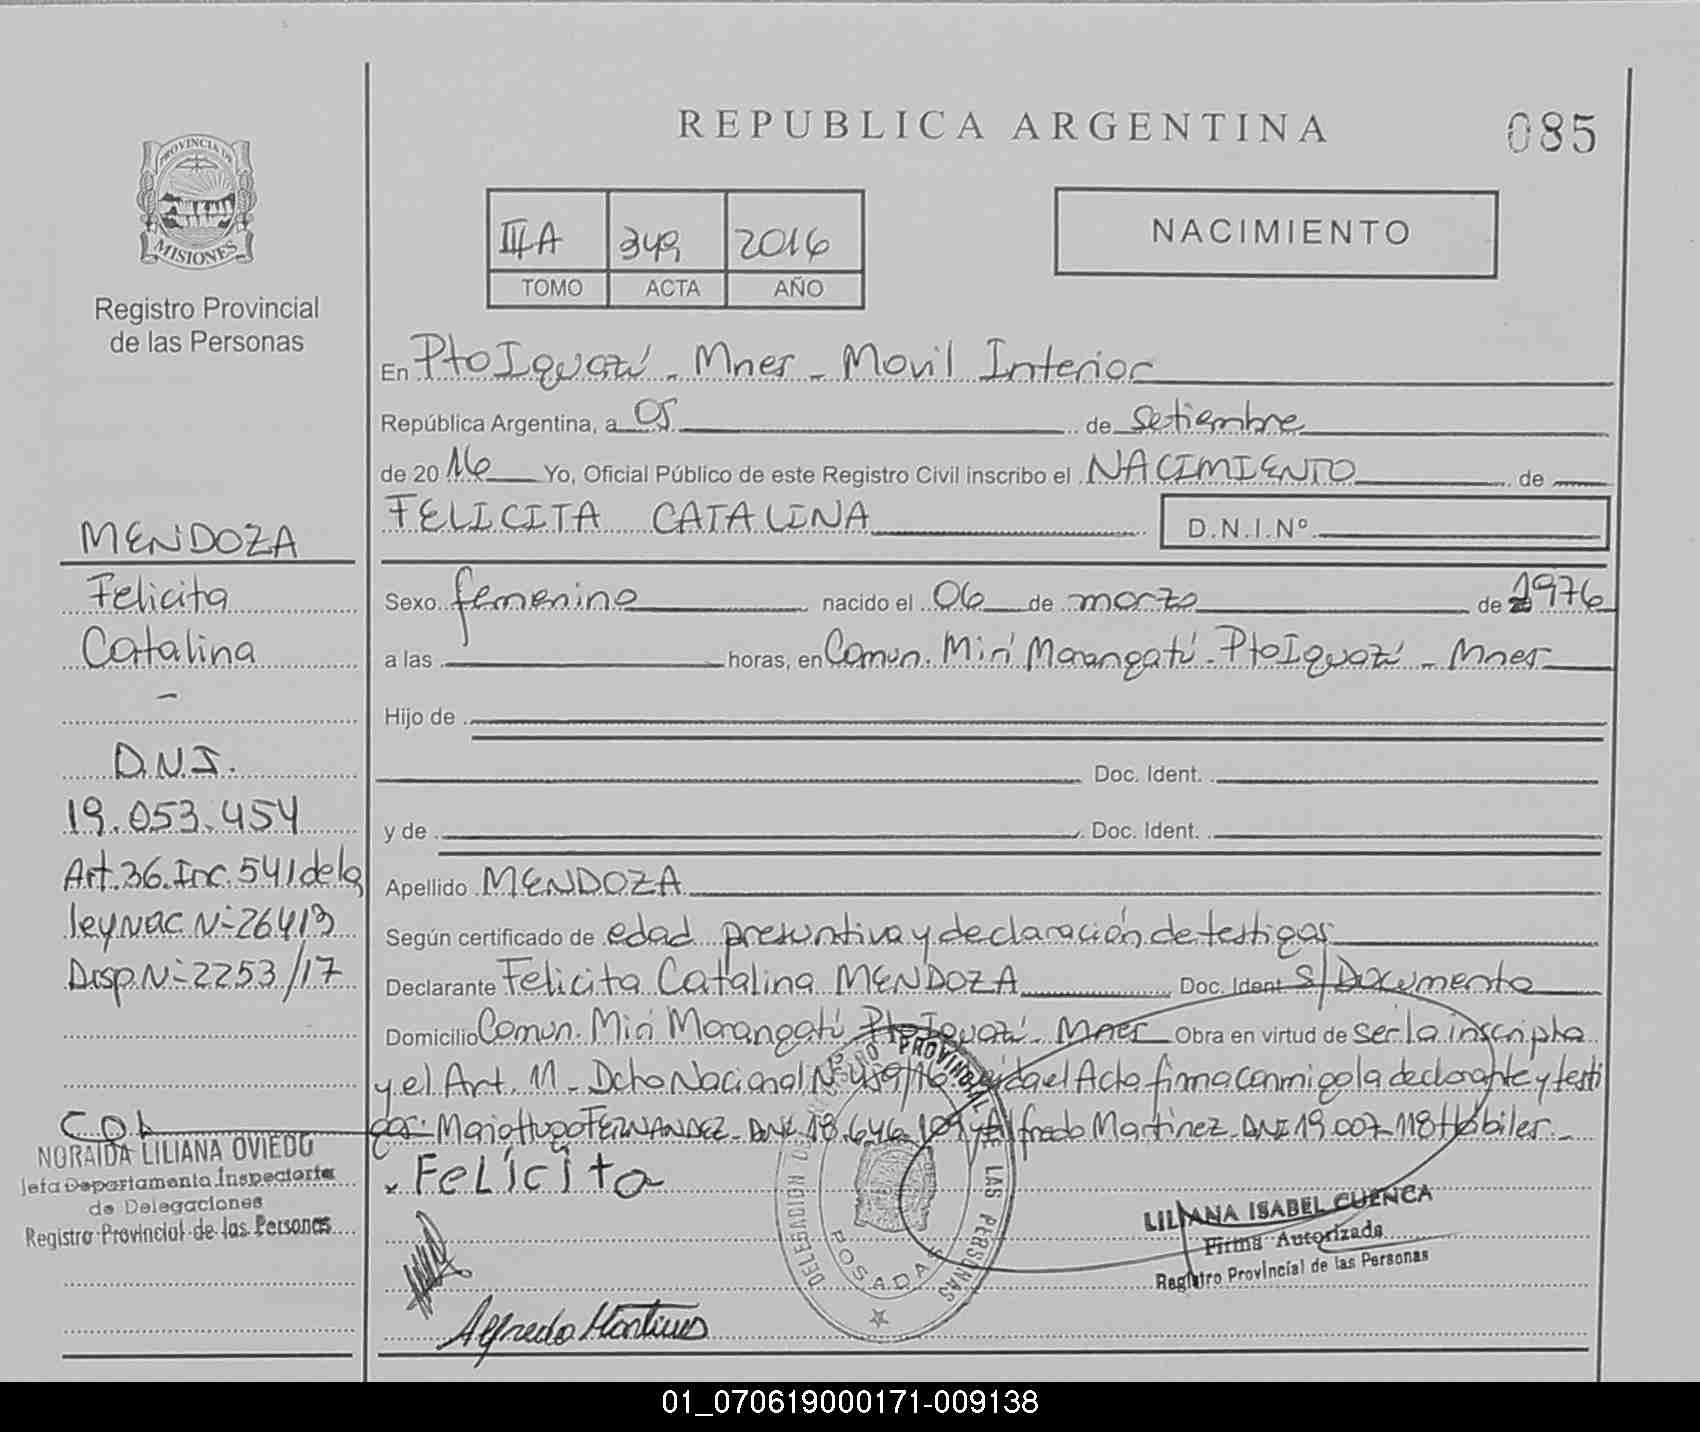 REPUBLICA ARGENTINA
085
PROVINCIA DE
MISIONES
Registro Provincial
de las Personas
IIIA 349 2016
TOMO ACTA AÑO
NACIMIENTO
En Pto Iguazú - Mnes - Movil Interior
República Argentina, a 05 de setiembre
de 2016 Yo, Oficial Público de este Registro Civil inscribo el NACIMIENTO de
FELICITA CATALINA D.N.I.Nº
Sexo femenino nacido el 06 de marzo de 1976
a las horas, en Comun. Mirí Marangatú - Pto Iguazú - Mnes
Hijo de
Doc. Ident.
y de Doc. Ident.
Apellido MENDOZA
Según certificado de edad presuntiva y declaración de testigos
Declarante Felicita Catalina MENDOZA Doc. Ident. s/Documento
Domicilio Comun. Mirí Marangatú Pto Iguazú - Mnes Obra en virtud de ser la inscripta
y el Art. 11 - Dcto Nacional Nº 459/16 el Acta firma conmigo la declarante y testi
gos: Mario Hugo FERNANDEZ - DNI 18.646. y Alfredo Martinez - DNI 19.007-118 Hábiles.-
x Felicita
Alfredo Martinez
PROVINCIAL DE LAS PERSONAS
DELEGACION
POSADAS
LILIANA ISABEL CUENCA
Firma Autorizada
Registro Provincial de las Personas
MENDOZA
Felicita
Catalina
-
D.N.I.
19.053.454
Art. 36. Inc. 541 de la
ley Nac Nº 26413
Disp Nº 2253/17
NORAIDA LILIANA OVIEDO
Jefa Departamento Inspectoria
de Delegaciones
Registro Provincial de las Personas
01_070619000171-009138